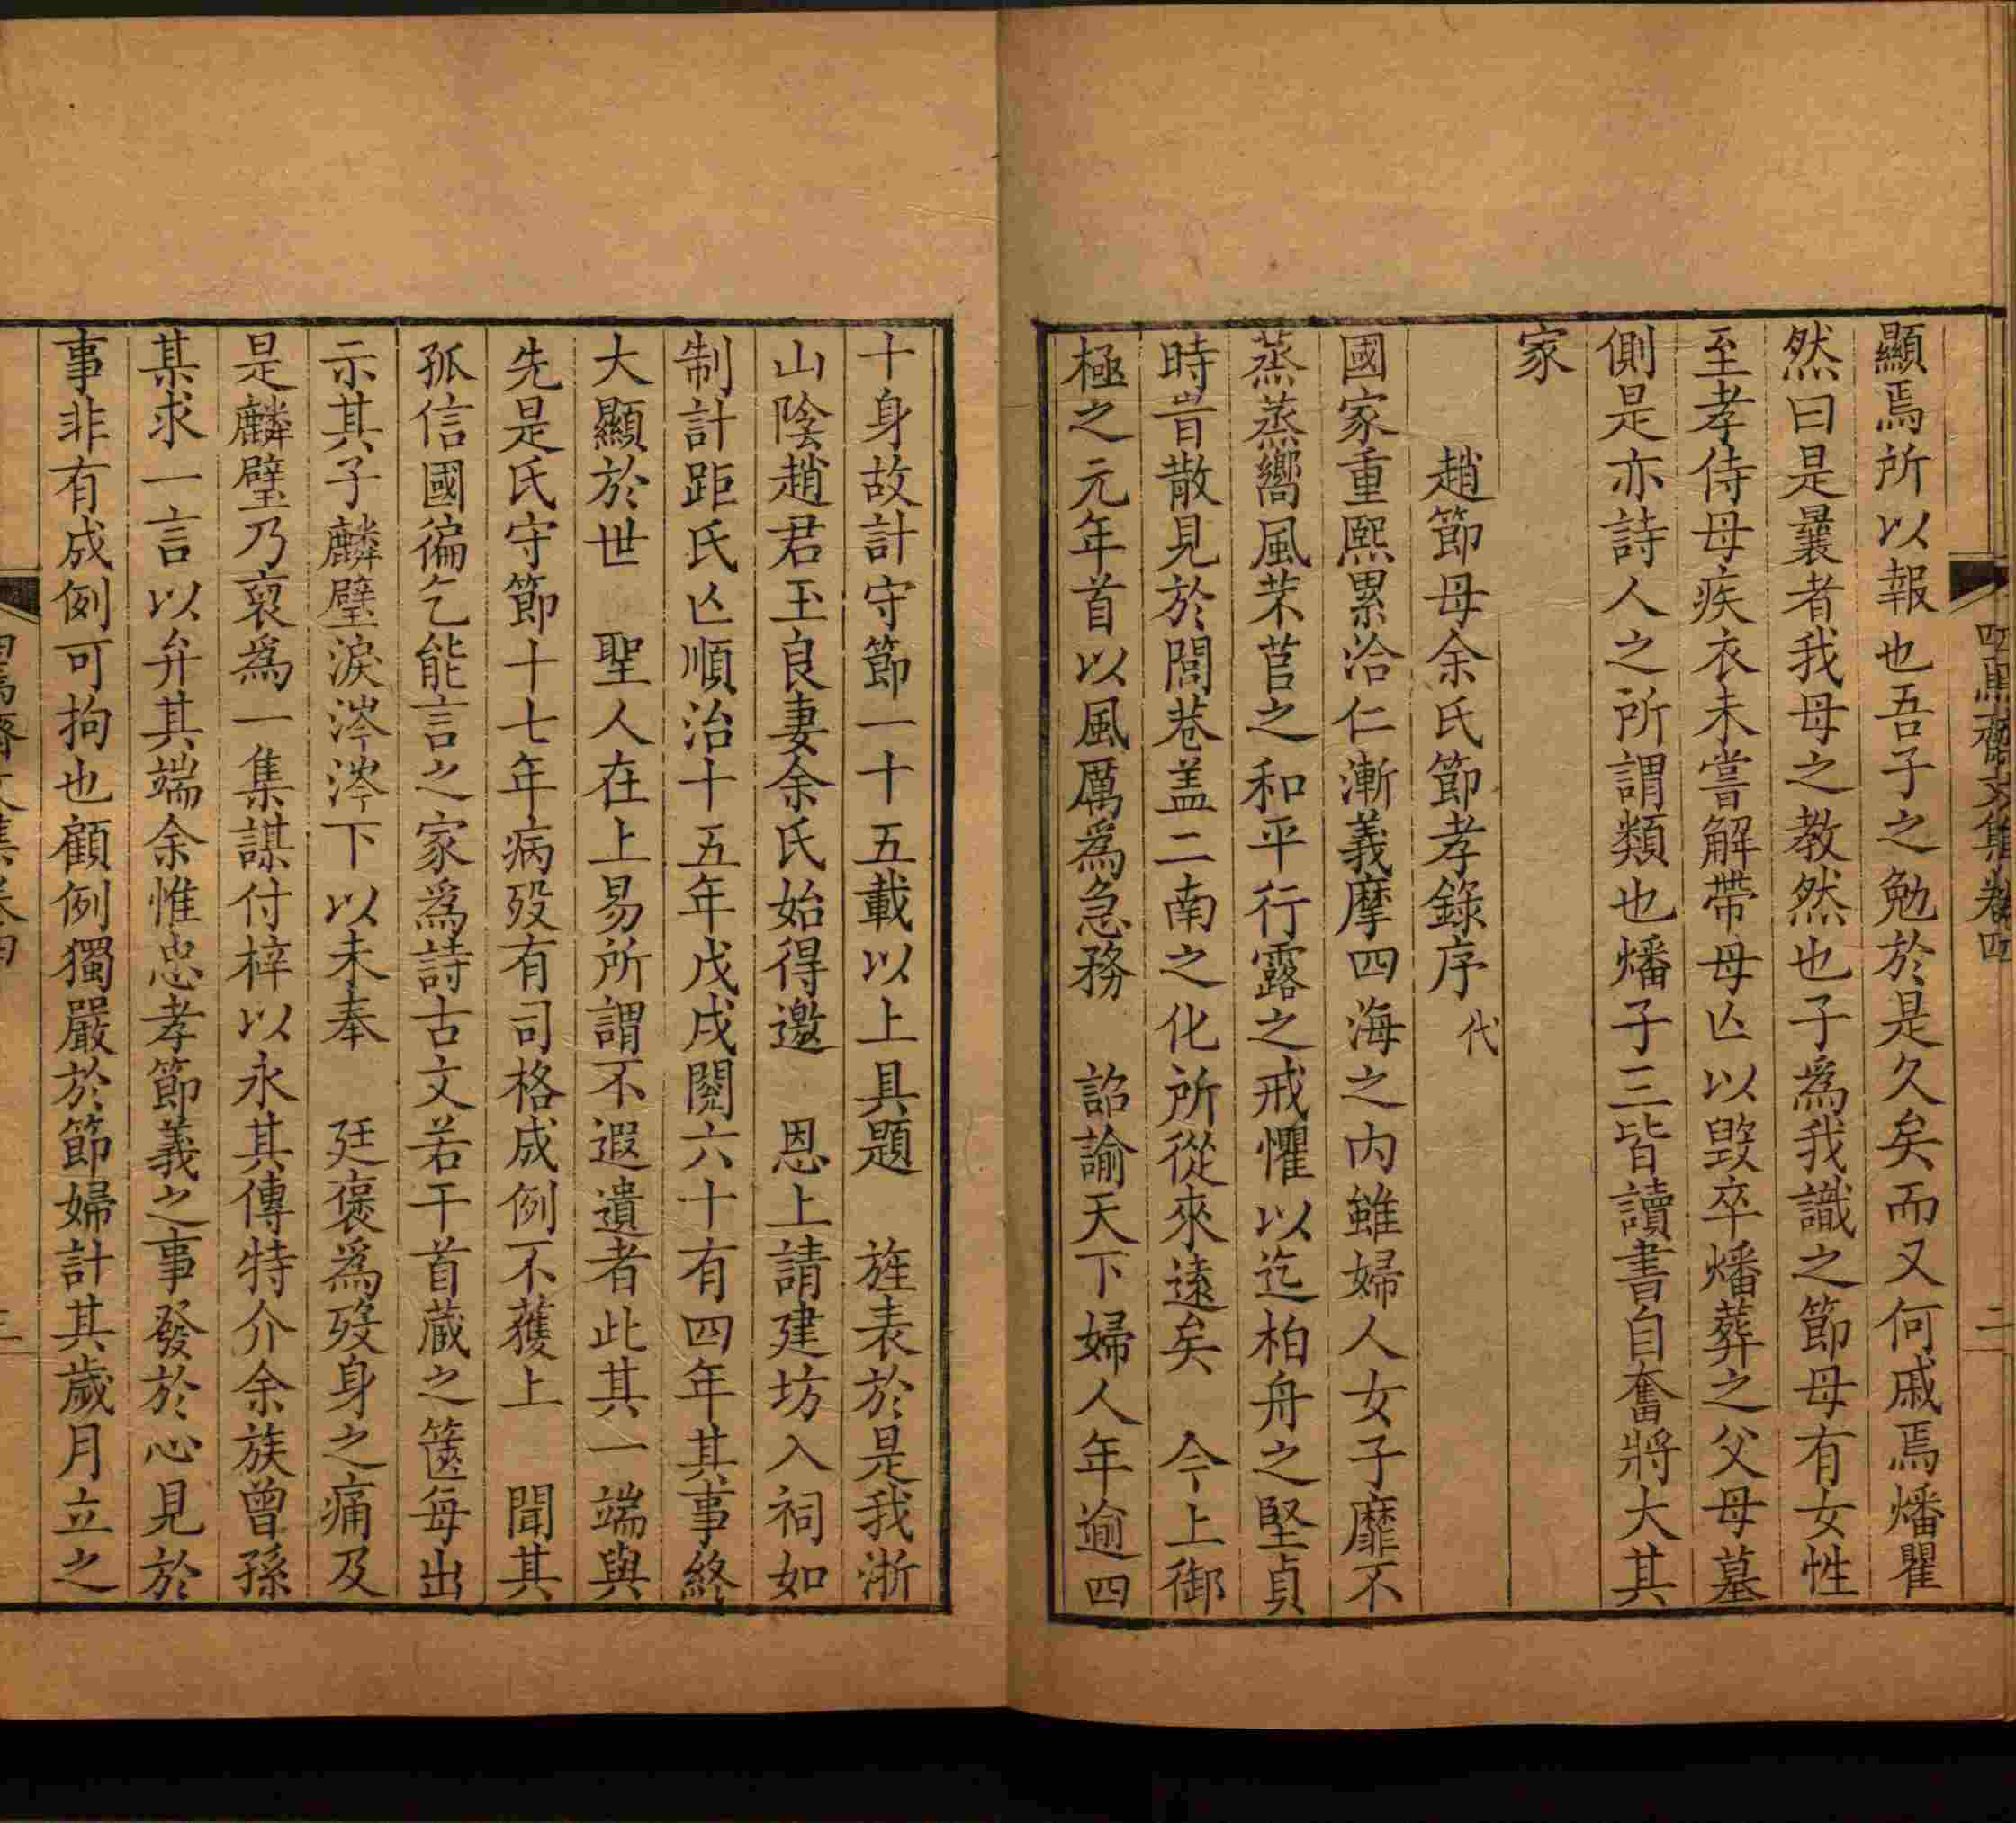 四焉齋文集卷四
二
顯焉所以報也吾子之勉於是久矣而又何戚焉燔瞿
然曰是曩者我母之教然也子爲我識之節母有女性
至孝侍母疾衣未嘗解帶母亾以毀卒燔葬之父母墓
側是亦詩人之所謂類也燔子三皆讀書自奮將大其
家
趙節母余氏節孝錄序 代
國家重熙累洽仁漸義摩四海之内雖婦人女子靡不
蒸蒸嚮風芣苢之和平行露之戒懼以迄柏舟之堅貞
時旹散見於閭巷盖二南之化所從來遠矣 今上御
極之元年首以風厲爲急務 詔諭天下婦人年逾四
十身故計守節一十五載以上具題 旌表於是我浙
山陰趙君玉良妻余氏始得邀 恩上請建坊入祠如
制計距氏亾順治十五年戊戌閱六十有四年其事終
大顯於世 聖人在上易所謂不遐遺者此其一端與
先是氏守節十七年病歿有司格成例不獲上 聞其
孤信國徧乞能言之家爲詩古文若干首蔵之篋每出
示其子麟璧淚涔涔下以未奉 廷褒爲歿身之痛及
是麟璧乃裒爲一集謀付梓以永其傳特介余族曾孫
某求一言以弁其端余惟忠孝節義之事發於心見於
事非有成例可拘也顧例獨嚴於節婦計其歲月立之
四焉齋文集卷四
三